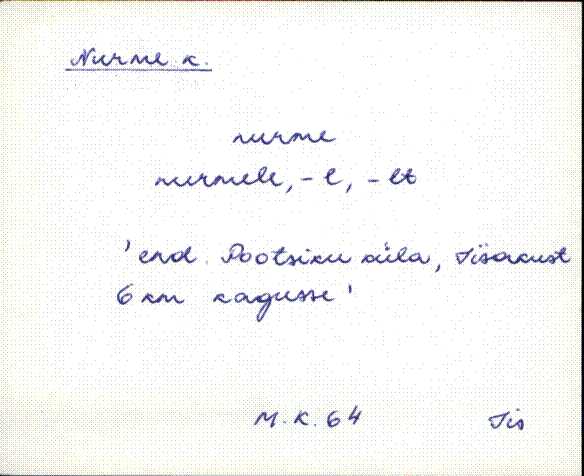 Nurme k.
nurme
nurmele, -l, -lt
'end. Pootsiku küla, Iisakust
6 km kagusse'
M. K. 64 Iis